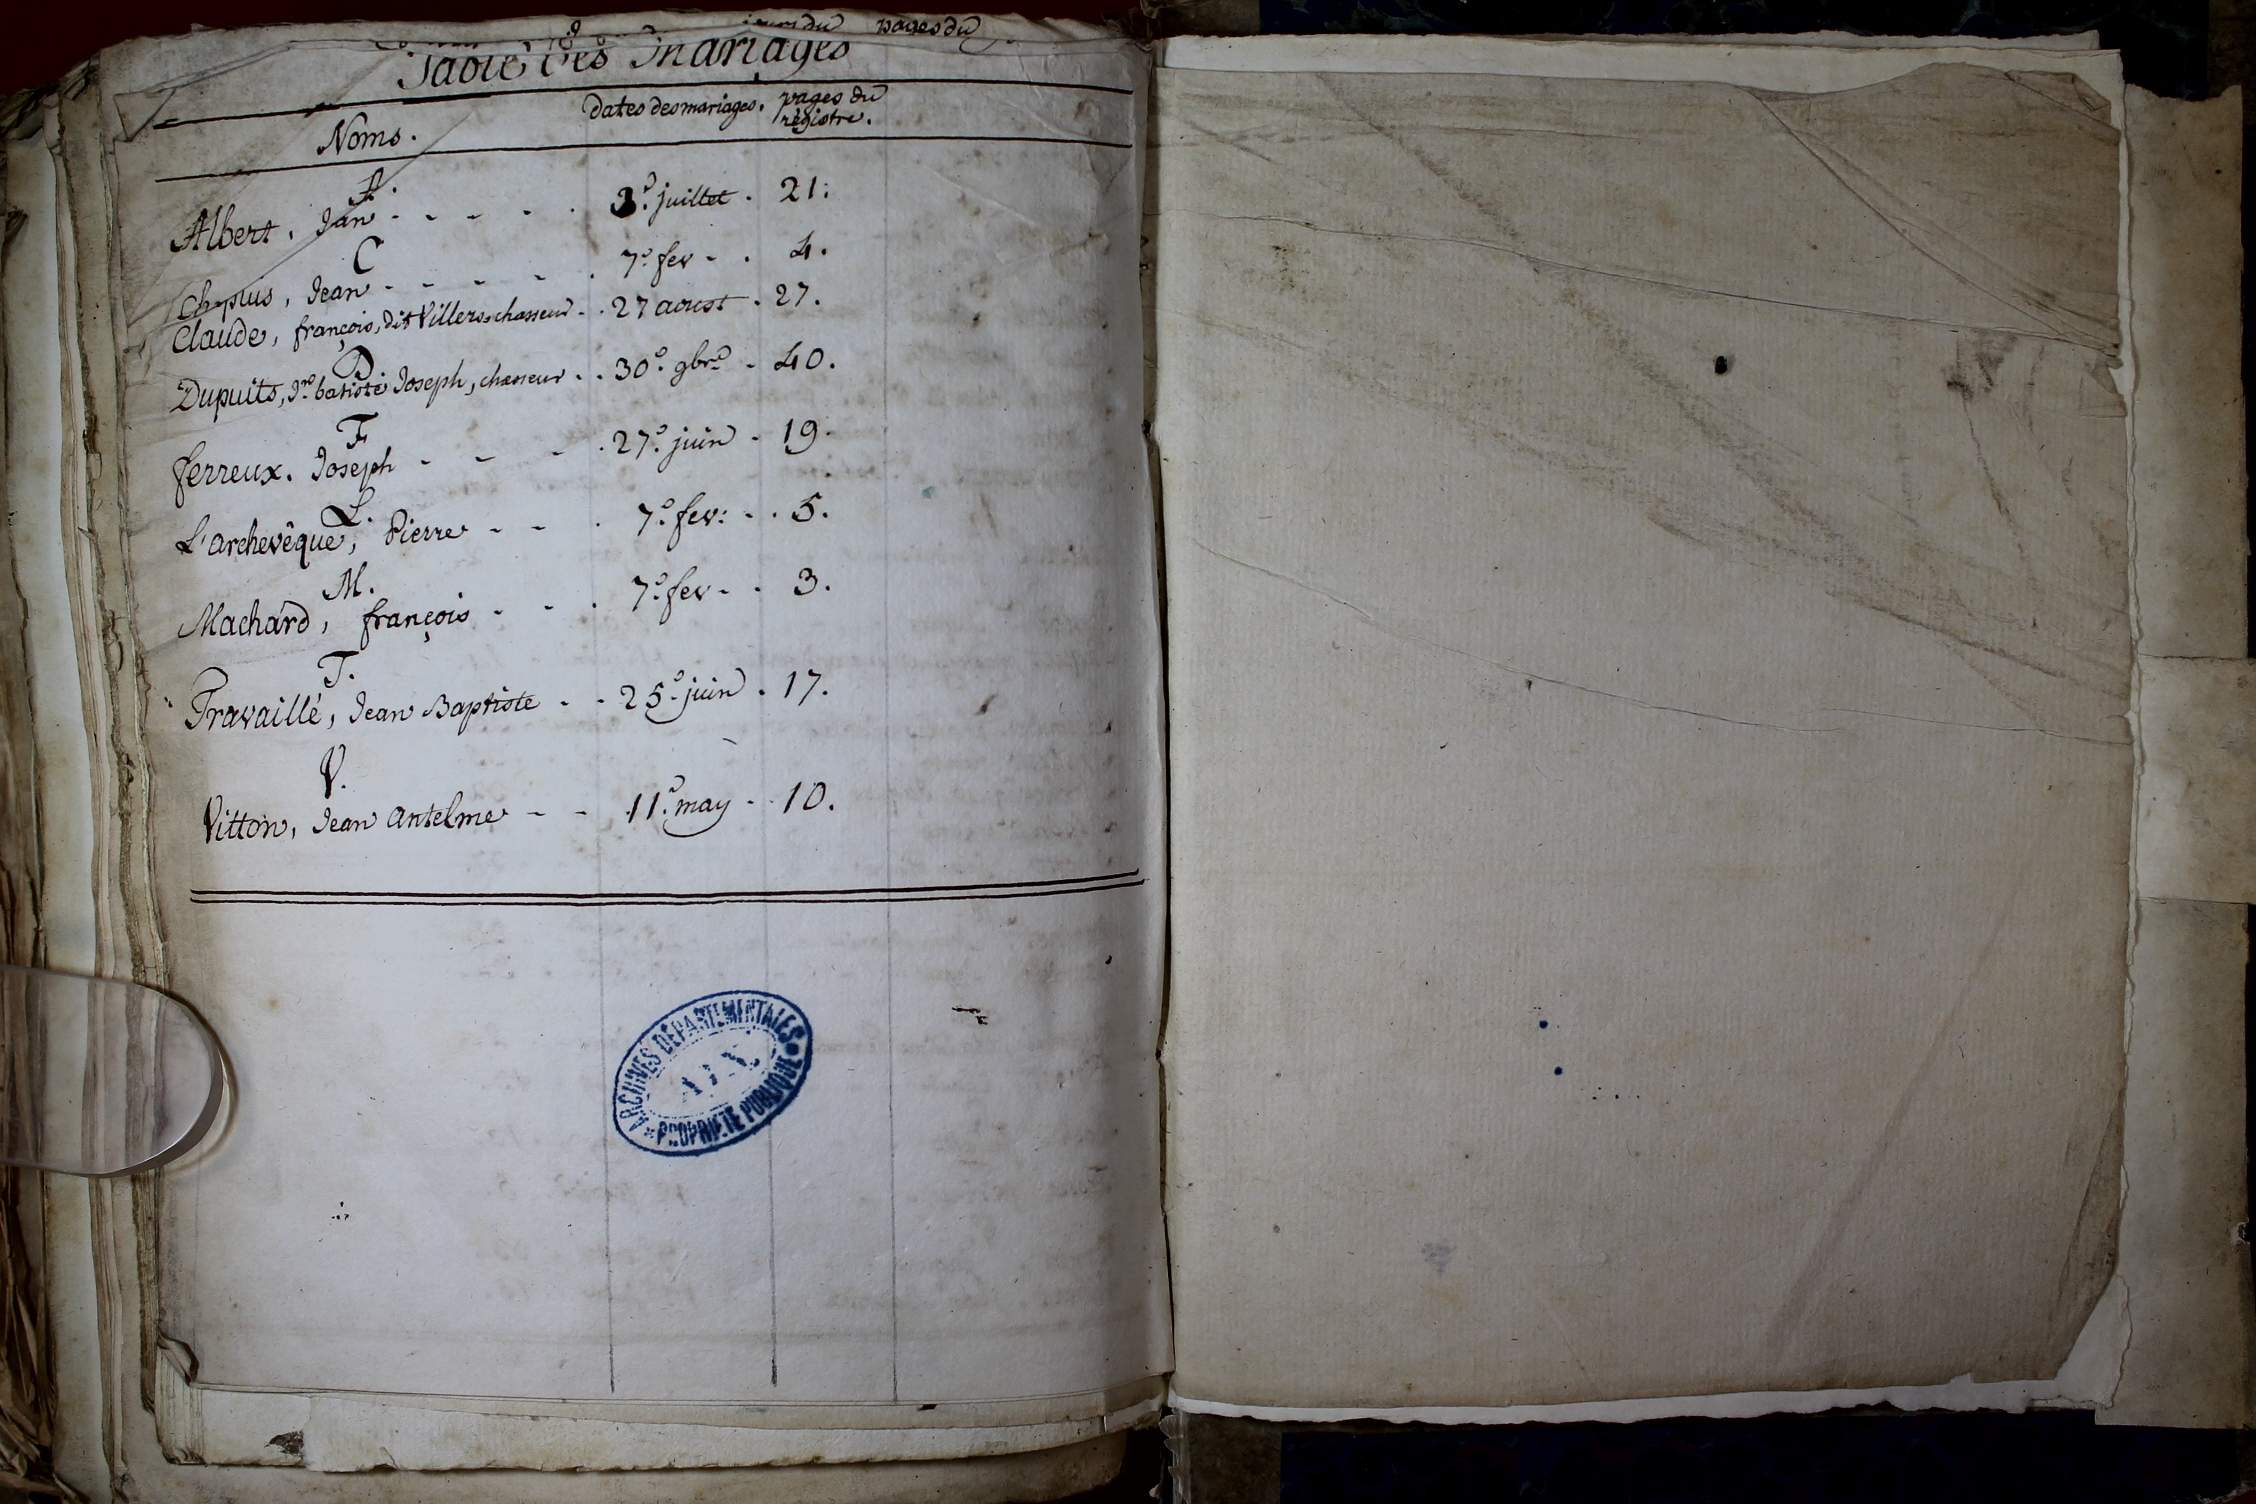 jours du pages du
Table des Mariages
Noms. dates des mariages. pages du
régistre.
A.
Albert, Jean - - - - . 3.e juillet . 21.
C
Chapius, Jean - - - - . 7.e fev - . 4.
Claude, françois, dit Villers chasseur - . 27 aoust . 27.
D
Dupuits, Jn. batiste Joseph, chasseur . . 30.e 9bre - 40.
F
ferreux. Joseph - - - . 27.e juin . 19.
L.
L'archevêque, Pierre - - . 7.e fev: - . 5.
M.
Machard, françois - - . 7.e fev - . 3.
T.
Travaillé, Jean Baptiste . . 25.e juin . 17.
V.
Vitton, Jean antelme - - 11.e may - . 10.
ARCHIVES DÉPARTEMENTALES
AIN
PROPRIÉTÉ PUBLIQUE